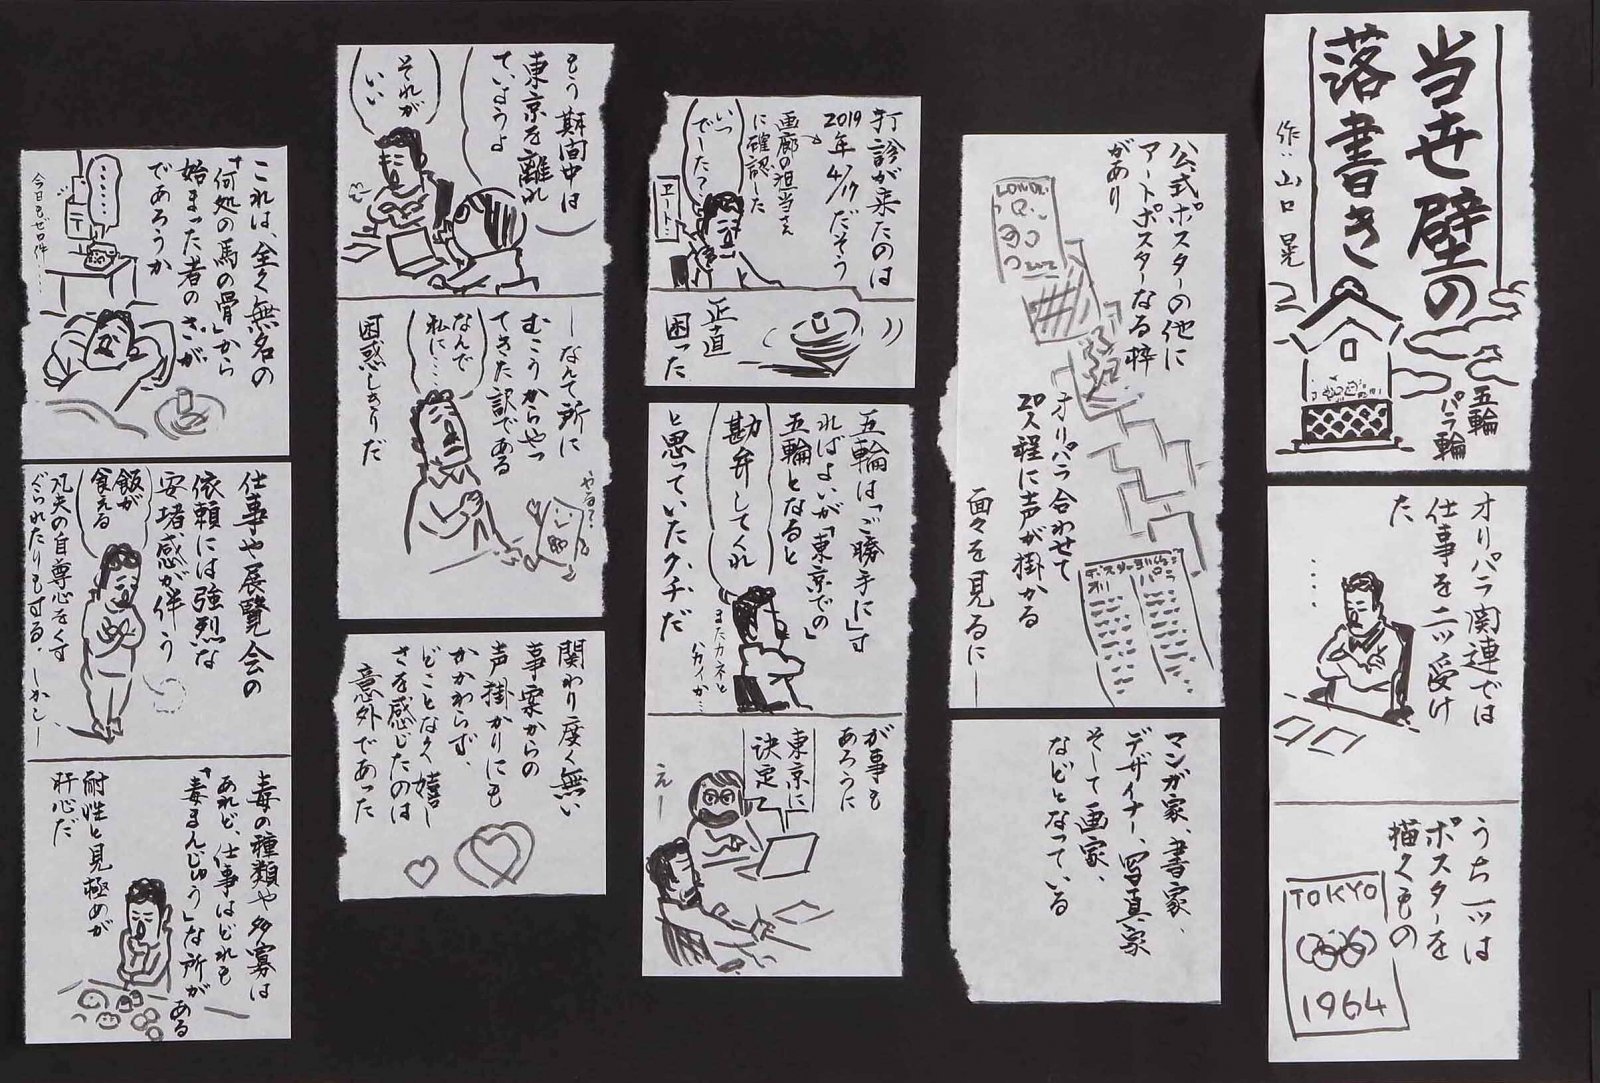 当世壁の
落書き
五輪
パラ輪
作:山口 晃
オリパラ関連では
仕事を二ッ受け
た
うち一ッは
ポスターを
描くもの
TOKYO
1964
公式ポスターの他に
アートポスターなる枠
があり
LONDON
オリパラ合わせて
20人程に声が掛かる
面々を見るに―
マンガ家、書家、
デザイナー、写真家
そして画家、
などとなっている
打診が来たのは
2019年4/17だそう
画廊の担当さん
に確認した
いつ
でーした?
正直
困った
五輪は「ご勝手に」す
ればよいが「東京での」
五輪となると
勘弁してくれ
と思っていたクチだ
またカネと
ハカイか…
が事も
あろうに
東京に
決定
えー
もう期間中は
東京を離れ
ていようよ
それが
いい
―なんて所に
むこうからやっ
てきた訳である
なんで
私に…
やるて?
困惑しきりだ
関わり度く無い
事案からの
声掛かりにも
かかわらず、
どことなく嬉し
さを感じたのは
意外であった
これは、全く無名の
「何処の馬の骨」から
始まった者のさが
であろうか
……
今日もゼロ件……
仕事や展覧会の
依頼には強烈な
安堵感が伴う
飯が
食える
凡夫の自尊心をくす
ぐられたりもする。しかし―
毒の種類や多寡は
あれど、仕事はどれも
「毒まんじゅう」な所がある
耐性と見極めが
肝心だ